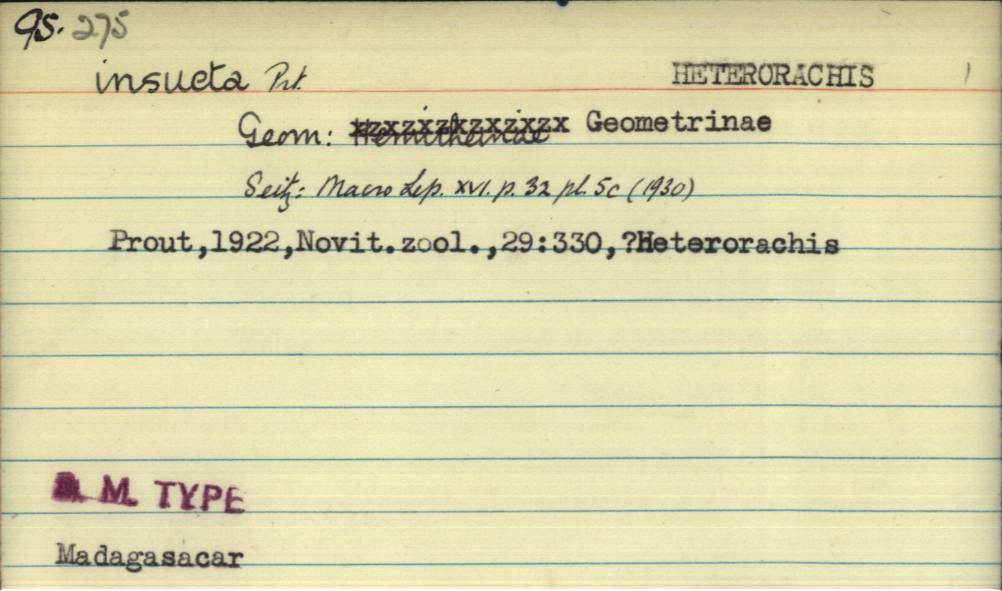 95. 275
insueta Prt. HETERORACHIS 1
Geom: Hemitheinae Geometrinae
Seitz: Macro Lep. XVI. p. 32 pl. 5c (1930)
Prout,1922,Novit.zool.,29:330,?Heterorachis
B. M. TYPE
Madagasacar